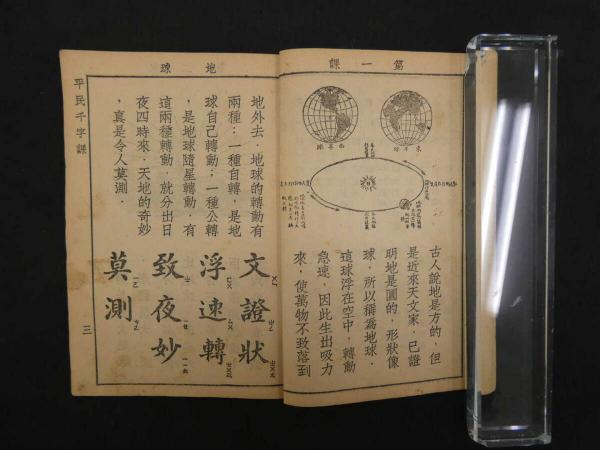 第一課
東半球
西半球
古人說地是方的，但
是近來天文家，已證
明地是圓的，形狀像
球，所以稱為地球．
這球浮在空中，轉動
急速，因此生出吸力
來，使萬物不致落到
地球
地外去．地球的轉動有
兩種；一種自轉，是地
球自己轉動；一種公轉
，是地球隨星轉動．有
這兩種轉動．就分出日
夜四時來．天地的奇妙
，真是令人莫測．
文證狀
浮速轉
致夜妙
莫測
平民千字課
三